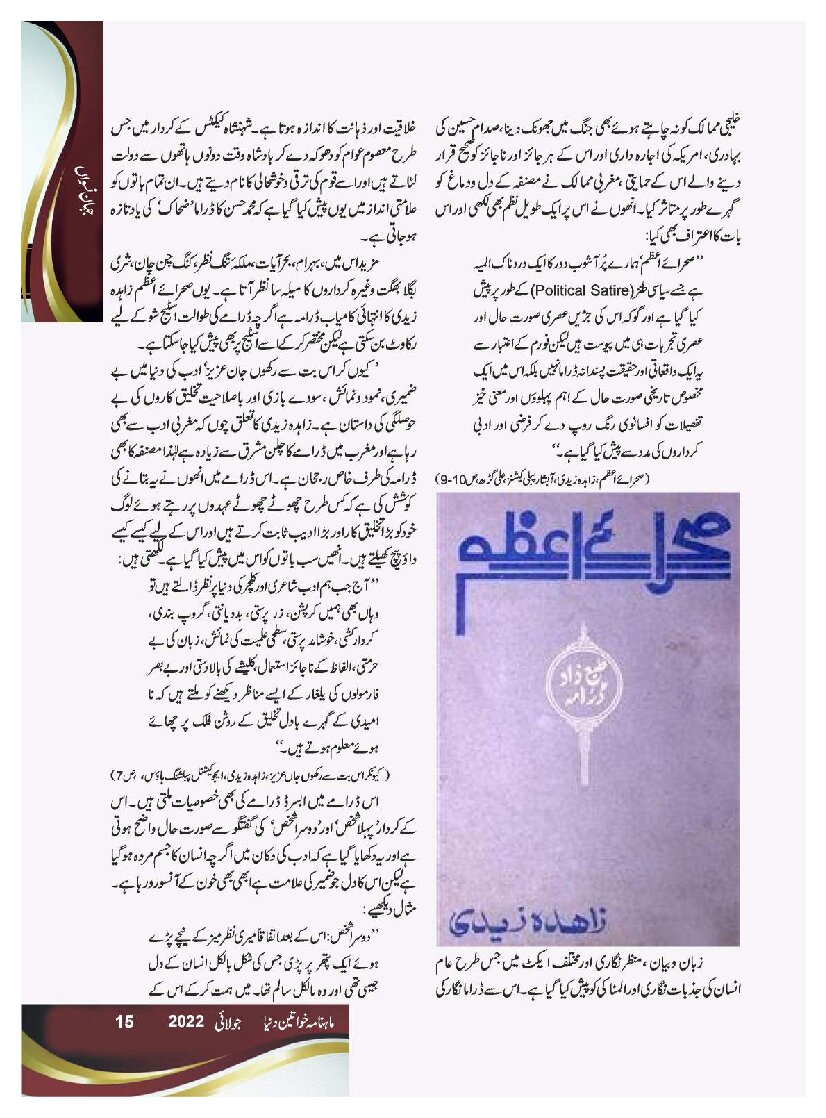 جہان نسواں
خلیجی ممالک کو نہ چاہتے ہوئے بھی جنگ میں جھونک دینا، صدام حسین کی
بہادری، امریکہ کی اجارہ داری اور اس کے ہر جائز اور ناجائز کو صحیح قرار
دینے والے اس کے حمایتی، مغربی ممالک نے مصنفہ کے دل و دماغ کو
گہرے طور پر متاثر کیا۔ انھوں نے اس پر ایک طویل نظم بھی لکھی اور اس
بات کا اعتراف بھی کیا:
’’صحرائے اعظم‘ ہمارے پُر آشوب دور کا ایک دردناک المیہ
ہے جسے سیاسی طنز (Political Satire) کے طور پر پیش
کیا گیا ہے اور گو کہ اس کی جڑیں عصری صورت حال اور
عصری تجربات ہی میں پیوست ہیں لیکن فورم کے اعتبار سے
یہ ایک واقعاتی اور حقیقت پسندانہ ڈراما نہیں بلکہ اس میں ایک
مخصوص تاریخی صورت حال کے اہم پہلوؤں اور معنی خیز
تفصیلات کو افسانوی رنگ روپ دے کر فرضی اور ادبی
کرداروں کی مدد سے پیش کیا گیا ہے۔‘‘
(صحرائے اعظم، زاہدہ زیدی، آبشار پبلی کیشنز، علی گڑھ، ص 10-9)
صحرائے اعظم
طبع زاد
ڈرامہ
زاہدہ زیدی
زبان و بیان، منظر نگاری اور مختلف ایکٹ میں جس طرح عام
انسان کی جذبات نگاری اور المناکی کو پیش کیا گیا ہے۔ اس سے ڈراما نگار کی
خلاقیت اور ذہانت کا اندازہ ہوتا ہے۔ شہنشاہ کیکٹس کے کردار میں جس
طرح معصوم عوام کو دھوکہ دے کر بادشاہ وقت دونوں ہاتھوں سے دولت
لٹاتے ہیں اور اسے قوم کی ترقی و خوشحالی کا نام دیتے ہیں۔ ان تمام باتوں کو
علامتی انداز میں یوں پیش کیا گیا ہے کہ محمد حسن کا ڈراما ’ضحاک‘ کی یاد تازہ
ہو جاتی ہے۔
مزید اس میں، بہرام، بحر آیات، ملکہ تنگ نظر، کنگ چن چان، شری
بگلا بھگت وغیرہ کرداروں کا میلہ سا نظر آتا ہے۔ یوں صحرائے اعظم زاہدہ
زیدی کا انتہائی کامیاب ڈرامہ ہے اگرچہ ڈرامے کی طوالت اسٹیج شو کے لیے
رکاوٹ بن سکتی ہے لیکن مختصر کر کے اسے اسٹیج پر بھی پیش کیا جا سکتا ہے۔
’کیوں کر اس بت سے رکھوں جان عزیز‘ ادب کی دنیا میں بے
ضمیری، نمود و نمائش، سودے بازی اور باصلاحیت تخلیق کاروں کی بے
حوصلگی کی داستان ہے۔ زاہدہ زیدی کا تعلق چوں کہ مغربی ادب سے بھی
رہا ہے اور مغرب میں ڈرامے کا چلن مشرق سے زیادہ ہے لہٰذا مصنفہ کا بھی
ڈرامہ کی طرف خاص رجحان ہے۔ اس ڈرامے میں انھوں نے یہ بتانے کی
کوشش کی ہے کہ کس طرح چھوٹے چھوٹے عہدوں پر رہتے ہوئے لوگ
خود کو بڑا تخلیق کار اور بڑا ادیب ثابت کرتے ہیں اور اس کے لیے کیسے کیسے
داؤ پیچ کھیلتے ہیں۔ انھیں سب باتوں کو اس میں پیش کیا گیا ہے۔ لکھتی ہیں:
’’آج جب ہم ادب شاعری اور کلچر کی دنیا پر نظر ڈالتے ہیں تو
وہاں بھی ہمیں کرپشن، زر پرستی، بددیانتی، گروپ بندی،
کردار کشی، خوشامد پرستی، سطحی علمیت کی نمائش، زبان کی بے
حرمتی، الفاظ کے ناجائز استعمال، کلیشے کی بالادستی اور بے بصر
فارمولوں کی یلغار کے ایسے مناظر دیکھنے کو ملتے ہیں کہ نا
امیدی کے گہرے بادل تخلیق کے روشن فلک پر چھائے
ہوئے معلوم ہوتے ہیں۔‘‘
(کیونکر اس بت سے رکھوں جاں عزیز، زاہدہ زیدی، ایجوکیشنل پبلشنگ ہاؤس، ص 7)
اس ڈرامے میں ابسرڈ ڈرامے کی بھی خصوصیات ملتی ہیں۔ اس
کے کردار ’پہلا شخص‘ اور ’دوسرا شخص‘ کی گفتگو سے صورت حال واضح ہوتی
ہے اور یہ دکھایا گیا ہے کہ ادب کی دکان میں اگرچہ انسان کا جسم مردہ ہو گیا
ہے لیکن اس کا دل جو ضمیر کی علامت ہے ابھی بھی خون کے آنسو رو رہا ہے۔
مثال دیکھیے:
’’دوسرا شخص: اس کے بعد اتفاقاً میری نظر میز کے نیچے پڑے
ہوئے ایک پتھر پر پڑی جس کی شکل بالکل انسان کے دل
جیسی تھی اور وہ بالکل سالم تھا۔ میں ہمت کر کے اس کے
ماہنامہ خواتین دنیا جولائی 2022 15